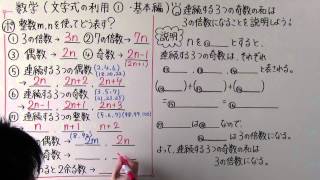 数学(文字式の利用①・基本編)
例 整数m,nを使ってどう表す?
① 3の倍数→ 3n ② 7の倍数→ 7n
③ 偶数→ 2n ④ 奇数→ 2n-1
(2n+1)
⑤ 連続する3つの偶数 (2,4,6)
→ 2n , 2n+2 , 2n+4
⑥ 連続する3つの奇数 (3,5,7)
→ 2n-1 , 2n+1 , 2n+3
⑦ 連続する3つの整数 (5,6,7)(98,99,100)
→ n , n+1 , n+2
の偶数→ 2m , 2n
奇数→
わると2余る数→
連続する3つの奇数の和は
3の倍数になることを説明しよう
説明
nを とすると、
連続する3つの奇数は、それぞれ
, , と表される。
( )+( )+( )
=
=
は なので、
は3の倍数になる。
よって、連続する3つの奇数の和は
3の倍数になる。